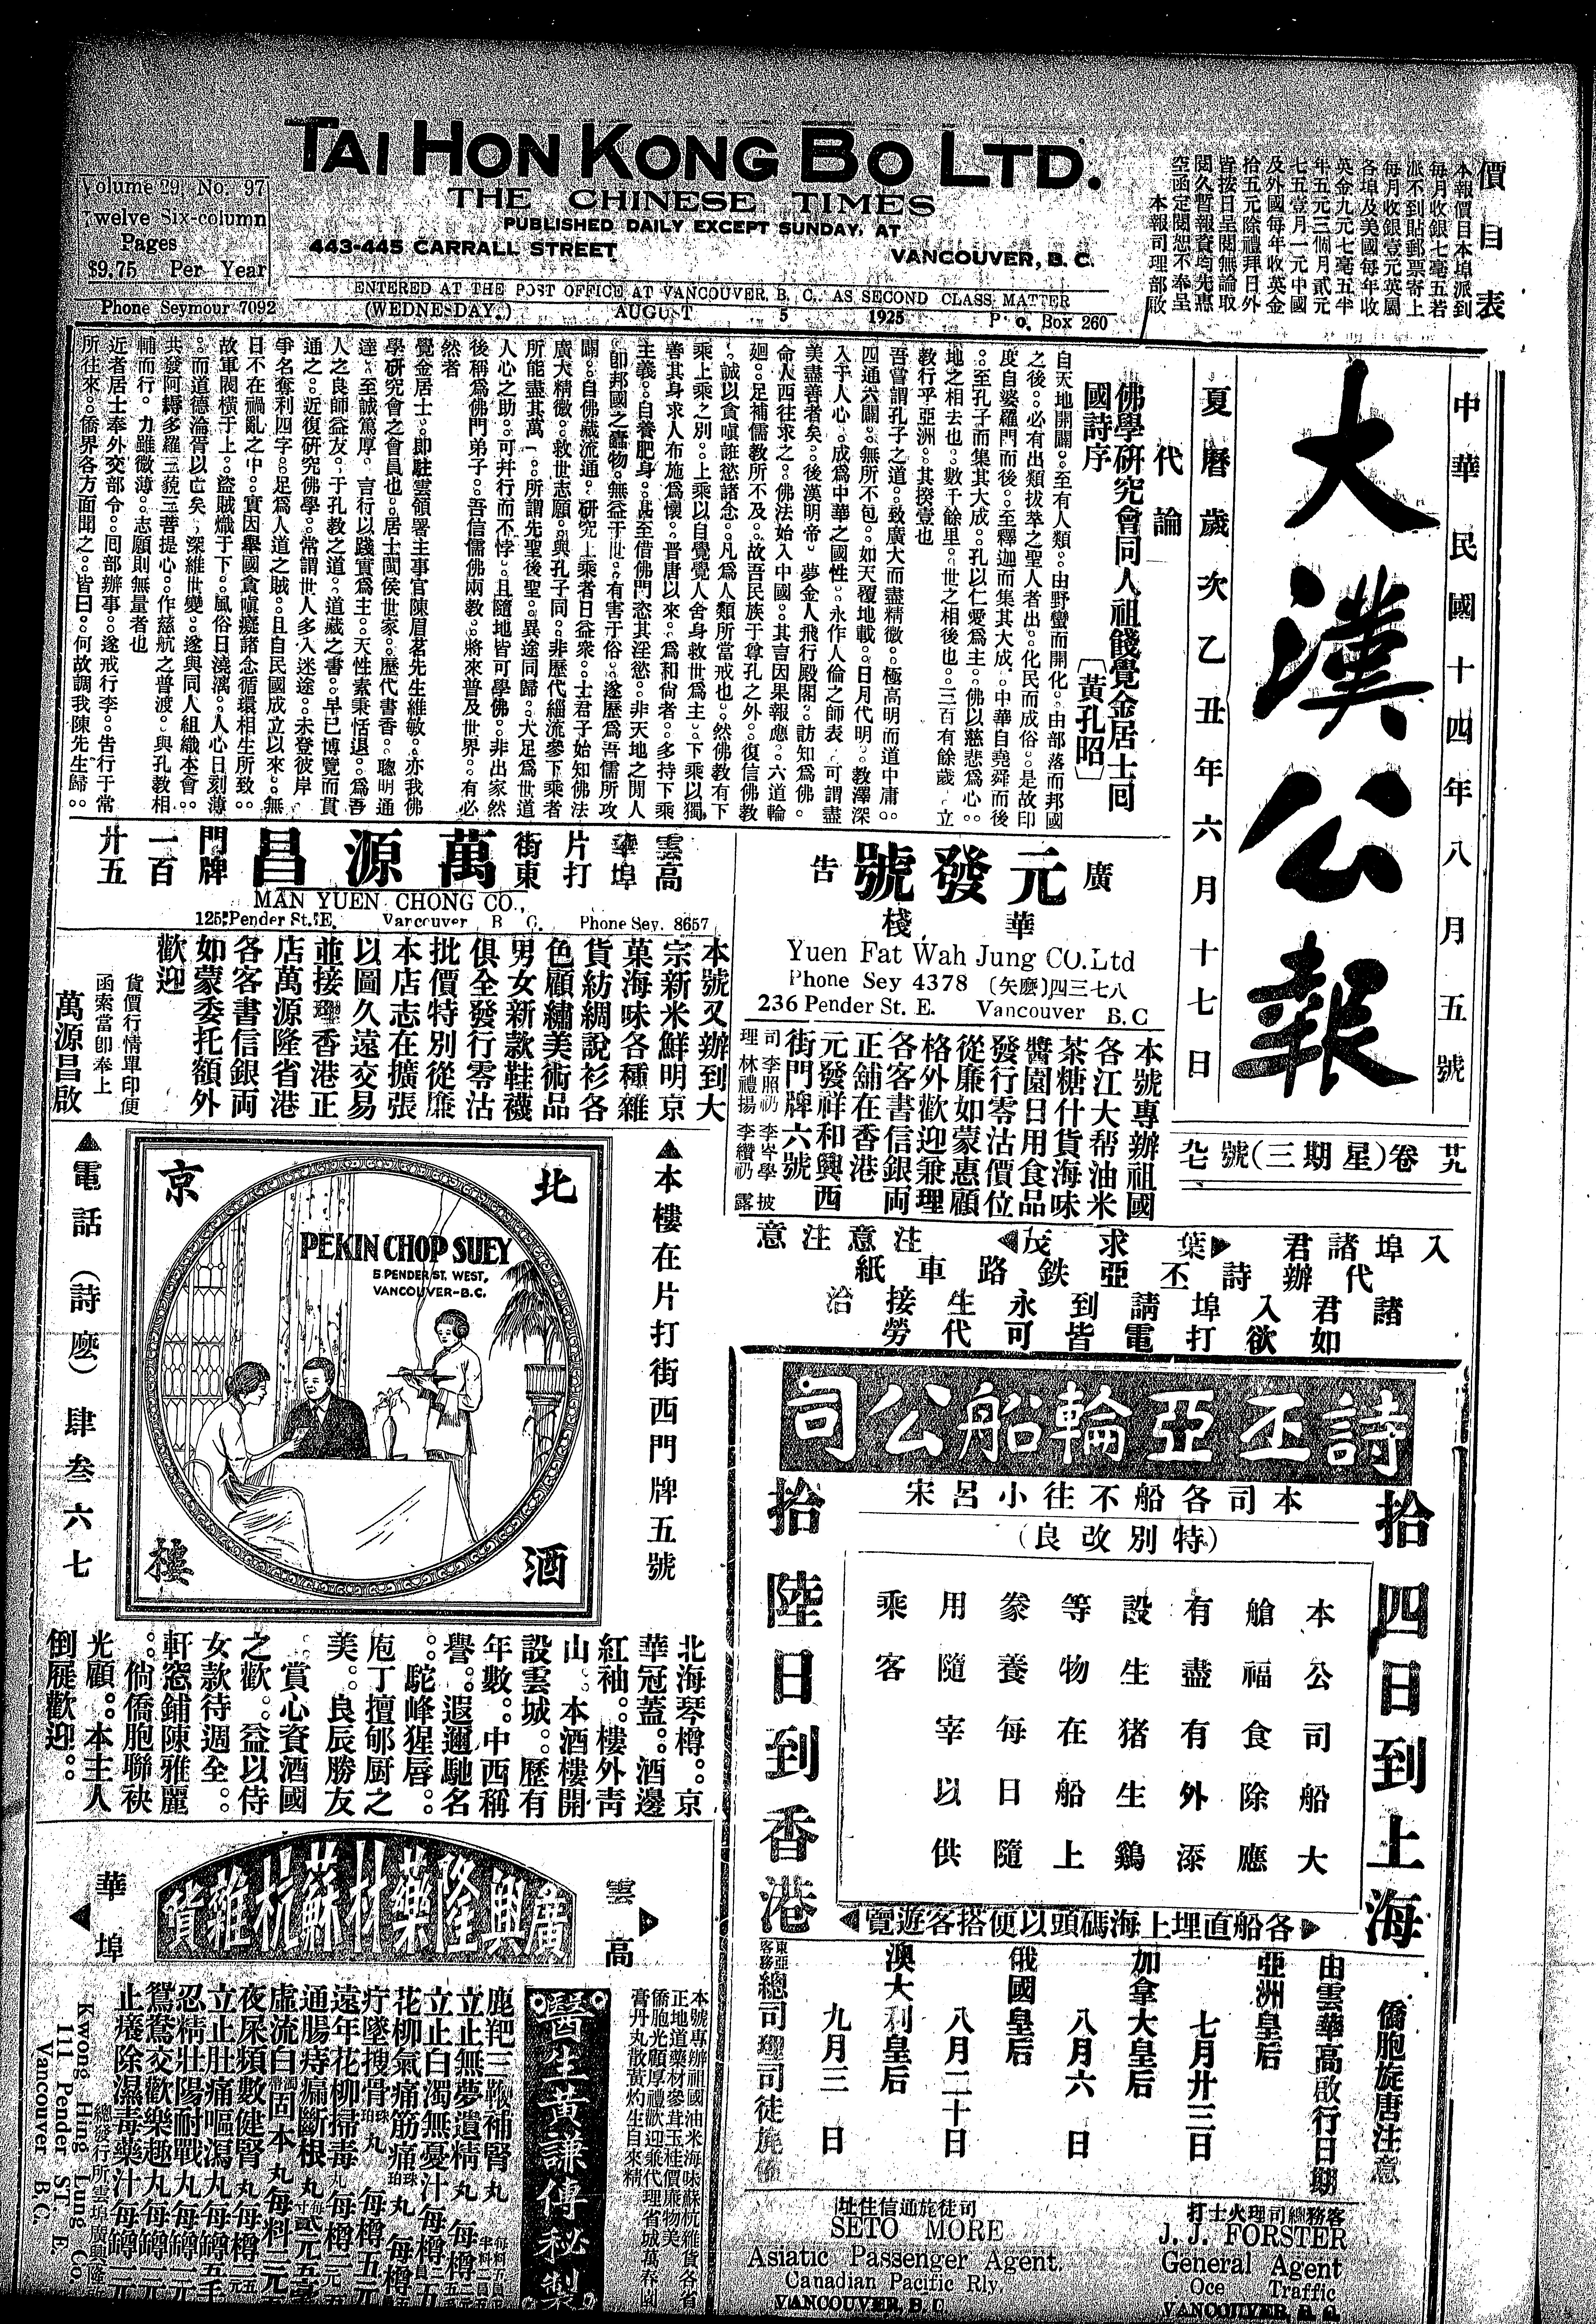 TAI HON KONG BO LTD.
THE CHINESE TIMES
PUBLISHED DAILY EXCEPT SUNDAY, AT
443-445 CARRALL STREET
VANCOUVER, B. C.
Volume 29, No. 97
Twelve Six-column
Pages
$9.75 Per Year
Phone Seymour 7092
ENTERED AT THE POST OFFICE AT VANCOUVER, B. C. AS SECOND CLASS MATTER
(WEDNESDAY.) AUGUST 5 1925 P. O. Box 260
價目表
本報價目本埠派到
每月收銀七毫五若
派不到貼郵票寄上
每月收銀壹元英屬
各埠及美國每年收
英金九元七毫五半
年五元三個月貳元
七五壹月一元中國
及外國每年收英金
拾五元除禮拜日外
皆按日呈閱無論取
閱久暫報資均先惠
空函定閱恕不奉呈
本報司理部啟
中華民國十四年八月五號
大漢公報
夏曆歲次乙丑年六月十七日
廿九卷(星期三)九七號
代論
佛學研究會同人祖餞覺金居士回
國詩序
〔黃孔昭〕
自天地開闢。至有人類。由野蠻而開化。由部落而邦國
之後。必有出類拔萃之聖人者出。化民而成俗。是故印
度自婆羅門而後。至釋迦而集其大成。中華自堯舜而後
。至孔子而集其大成。孔以仁愛為主。佛以慈悲為心。
地之相去也。數千餘里。世之相後也。三百有餘歲。立
教行乎亞洲。其揆壹也
吾嘗謂孔子之道。致廣大而盡精微。極高明而道中庸。
四通六闢。無所不包。如天覆地載。日月代明。教澤深
入于人心。成為中華之國性。永作人倫之師表。可謂盡
美盡善者矣。後漢明帝。夢金人飛行殿閣。訪知為佛。
命人西往求之。佛法始入中國。其言因果報應。六道輪
廻。足補儒教所不及。故吾民族于尊孔之外。復信佛教
。誠以貪嗔誑慾諸念。凡為人類所當戒也。然佛教有下
乘上乘之別。上乘以自覺覺人舍身救世為主。下乘以獨
善其身求人布施為懷。晋唐以來。為和尚者。多持下乘
主義。自養肥身。甚至借佛門恣其淫慾。非天地之閒人
。卽邦國之蠹物。無益于世。有害于俗。遂歷為吾儒所攻
闢。自佛藏流通。研究上乘者日益衆。士君子始知佛法
廣大精微。救世志願。與孔子同。非歷代緇流參下乘者
所能盡其萬一。所謂先聖後聖。異途同歸。大足為世道
人心之助。可并行而不悖。且隨地皆可學佛。非出家然
後稱為佛門弟子。吾信儒佛兩教。將來普及世界。有必
然者
覺金居士。卽駐雲領署主事官陳眉茗先生維敏。亦我佛
學研究會之會員也。居士閩侯世家。歷代書香。聰明通
達。至誠篤厚。言行以踐實為主。天性素秉恬退。為吾
人之良師益友。于孔教之道。道藏之書。早已博覽而貫
通之。近復研究佛學。常謂世人多入迷途。未登彼岸
爭名奪利四字。足為人道之賊。且自民國成立以來。無
日不在禍亂之中。實因舉國貪嗔癡諸念循環相生所致。
故軍閥橫于上。盜賊熾于下。風俗日澆漓。人心日刻薄
。而道德淪胥以亡矣。深維世變。遂與同人組織本會。
共發阿耨多羅三藐三菩提心。作慈航之普渡。與孔教相
輔而行。力雖微薄。志願則無量者也
近者居士奉外交部令。回部辦事。遂戒行李。告行于常
所往來。僑界各方面聞之。皆曰。何故調我陳先生歸。
廣告
元發號
華棧
Yuen Fat Wah Jung CO.Ltd
Phone Sey 4378 〔矢麽〕四三七八
236 Pender St. E. Vancouver B.C
本號專辦祖國
各江大帮油米
茶糖什貨海味
醬園日用食品
發行零沽價位
從廉如蒙惠顧
格外歡迎兼理
各客書信銀両
正舖在香港
元發祥和興西
街門牌六號
司理 李照礽 林禮揚 李岑學 李纘礽 披露
雲高華埠片打街東門牌一百廿五
萬源昌
MAN YUEN CHONG CO.,
125 Pender St. E. Vancouver B. C. Phone Sey. 8657
本號又辦到大
宗新米鮮明京
菓海味各種雜
貨紡綢說衫各
色顧繡美術品
男女新款鞋襪
俱全發行零沽
批價特別從廉
本店志在擴張
以圖久遠交易
並接香港正
店萬源隆省港
各客書信銀両
如蒙委托額外
歡迎
貨價行情單印便
函索當卽奉上
萬源昌啟
入埠諸君 葉求茂 注意注意
代辦詩丕亞鉄路車紙
諸君入埠請到永生接洽
如欲打電皆可代勞
▲本樓在片打街西門牌五號
北京酒樓
PEKIN CHOP SUEY
5 PENDER ST. WEST,
VANCOUVER-B.C.
▲電話(詩麽)肆叁六七
北海琴樽。京
華冠蓋。酒邊
紅袖。樓外青
山。本酒樓開
設雲城。歷有
年數。中西稱
譽。遐邇馳名
。駝峰猩唇。
庖丁擅郇厨之
美。良辰勝友
。賞心資酒國
之歡。益以侍
女款待週全。
軒窓鋪陳雅麗
。倘僑胞聯袂
光顧。本主人
倒屣歡迎。
詩丕亞輪船公司
本司各船不往小呂宋
(特別改良)
拾四日到上海
拾陸日到香港
本公司船大
艙福食除應
有盡有外添
設生猪生鷄
等物在船上
豢養每日隨
用隨宰以供
乘客
各船直埋上海碼頭以便搭客遊覽
僑胞旋唐注意
由雲華高啟行日期
亞洲皇后 七月廿三日
加拿大皇后 八月六日
俄國皇后 八月二十日
澳大利皇后 九月三日
東亞客務總司理司徒旄
司徒旄通信住址
SETO MORE
Asiatic Passenger Agent.
Canadian Pacific Rly.
VANCOUVER, B. C
客務總司理火士打
J. J. FORSTER
General Agent
Oce Traffic
VANCOUVER, B. C.
雲高華埠
廣興隆藥材蘇杭雜貨
本號專辦祖國油米海味蘇杭雜貨各省
正地道藥材參茸玉桂價廉物美
僑胞光顧厚禮歡迎兼代理省城萬春園
膏丹丸散黃灼生自來精
醫生黃謙傳秘製
鹿羓三鞭補腎丸
立止無夢遺精丸
立止白濁無憂汁
花柳氣痛筋痛
疔墜搜骨
遠年花柳掃毒丸
通腸痔瘺斷根丸
虛流白固本丸
夜尿頻數健腎丸
立止肚痛嘔瀉丸
忍精壯陽耐戰丸
鴛鴦交歡樂趣丸
止癢除濕毒藥汁
Kwong Hing Lung Co.
111 Pender ST. E.
Vancouver B.C.